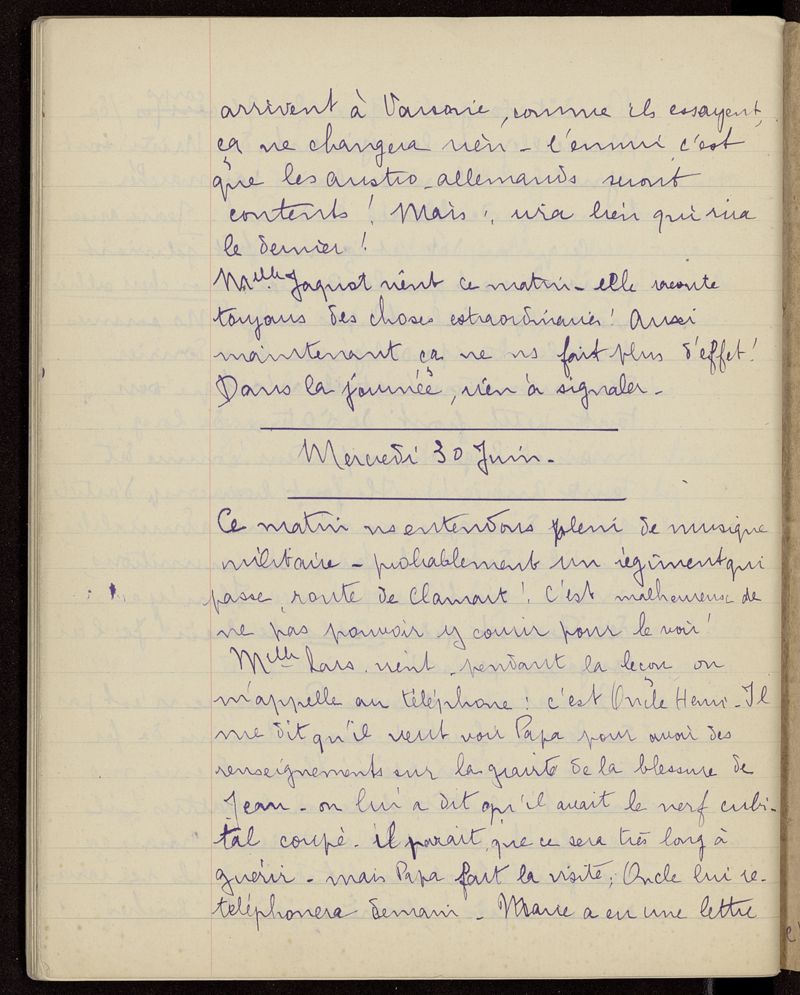 arrivent à Varsovie, comme ils essayent,
ça ne changera rien - l'ennui c'est
que les austro-allemands seront
contents ! Mais, rira bien qui rira
le dernier !
Melle Jaquot vient ce matin - elle raconte
toujours des choses extraordinaires ! Aussi
maintenant ça ne ns fait plus d'effet !
Dans la journée, rien à signaler -
Mercredi 30 Juin -
Ce matin ns entendons plein de musique
militaire - probablement un régiment qui
passe, route de Clamart ! C'est malheureux de
ne pas pouvoir y courir pour le voir !
Melle vient - pendant la leçon on
m'appelle au téléphone : c'est Oncle Henri - Il
me dit qu'il veut voir Papa pour avoir des
renseignements sur la gravité de la blessure de
Jean - on lui a dit qu'il avait le nerf cubi-
tal coupé - il parait que ce sera très long à
guérir - mais Papa fait la visite ; Oncle lui re-
téléphonera demain - Marie a eu une lettre